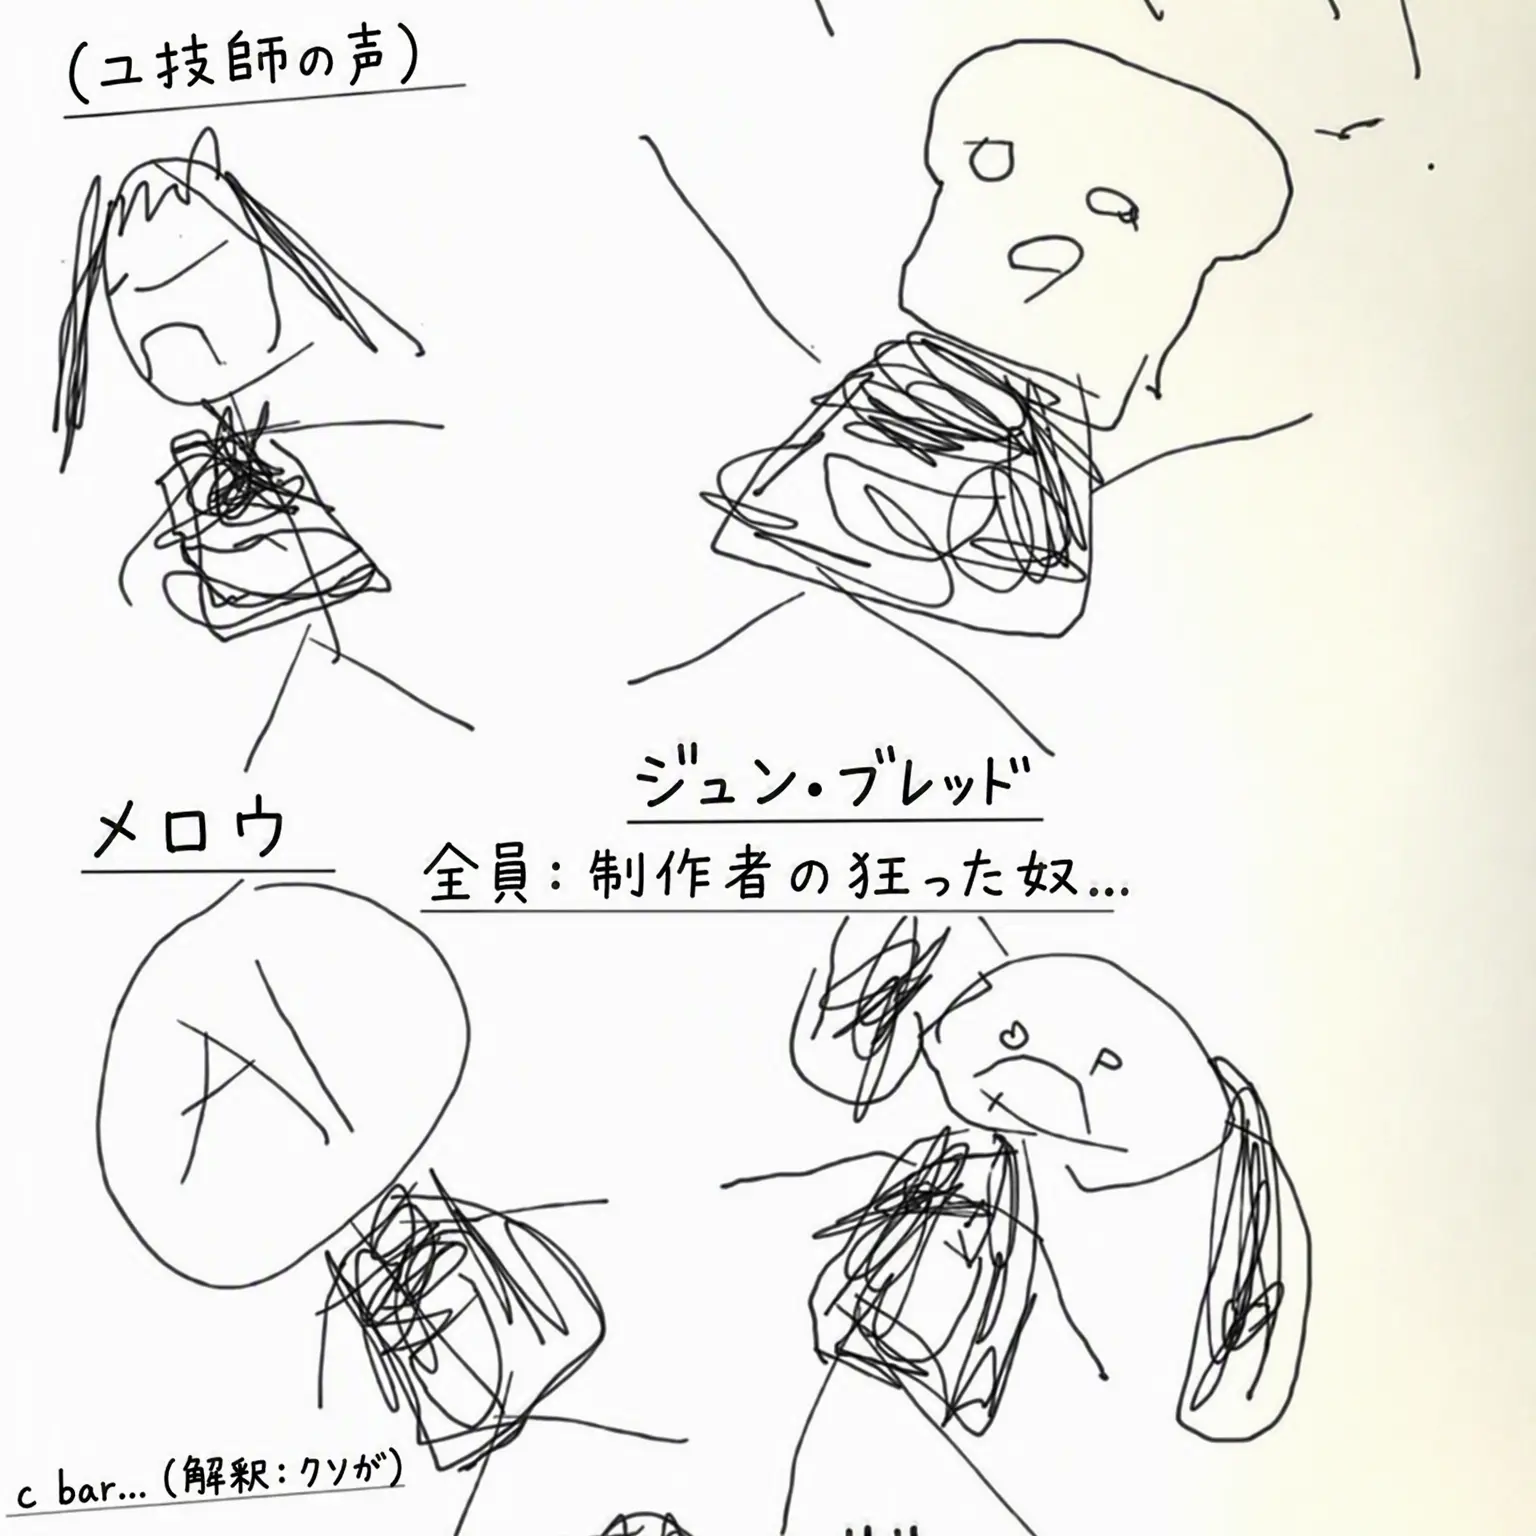 (ユ技師の声)
ジュン・ブレッド
メロウ
全員:制作者の狂った奴...
c bar...(解釈:クソが)